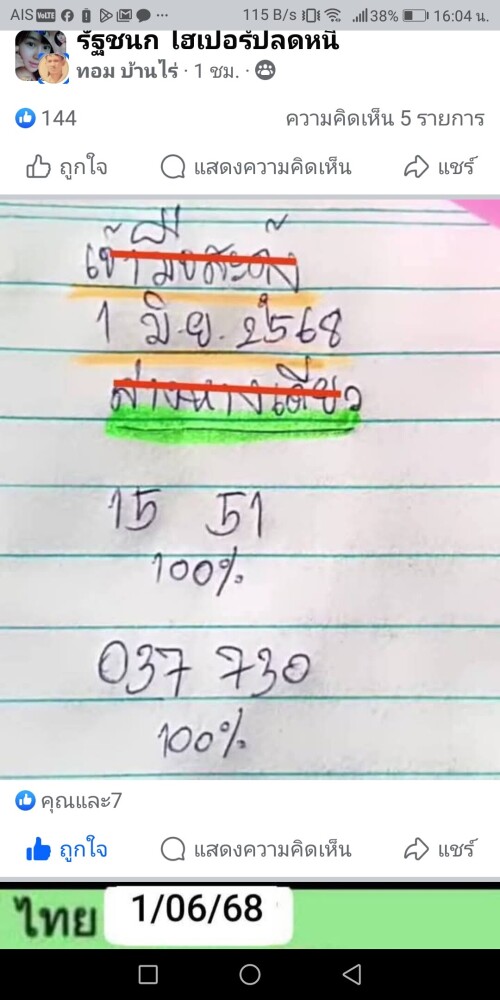 AIS VoLTE 115 B/s 38% 16:04 น.
รัฐชนก ไฮเปอร์ปลดหนี้
ทอม บ้านไร่ · 1 ชม. ·
144 ความคิดเห็น 5 รายการ
ถูกใจ แสดงความคิดเห็น แชร์
1 มิ.ย. 2568
ล่างทางเดียว
15 51
100%
037 730
100%
คุณและ7
ถูกใจ แสดงความคิดเห็น แชร์
ไทย 1/06/68